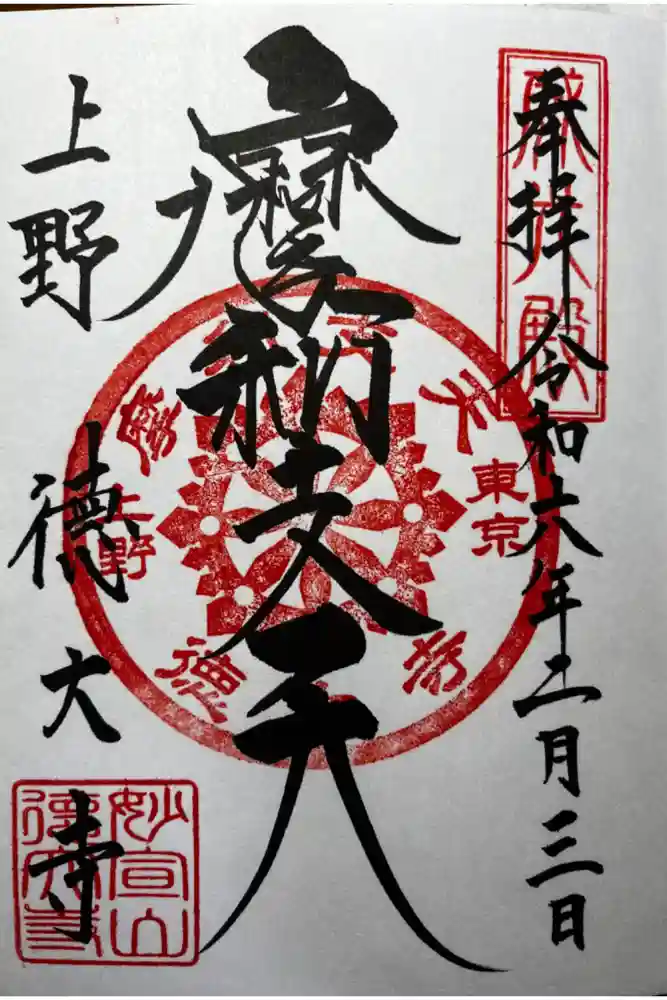 奉拝 令和六年二月三日
摩利支天
上野 徳大寺
摩利支天
東京
上野
徳大寺
妙宣山
徳大寺